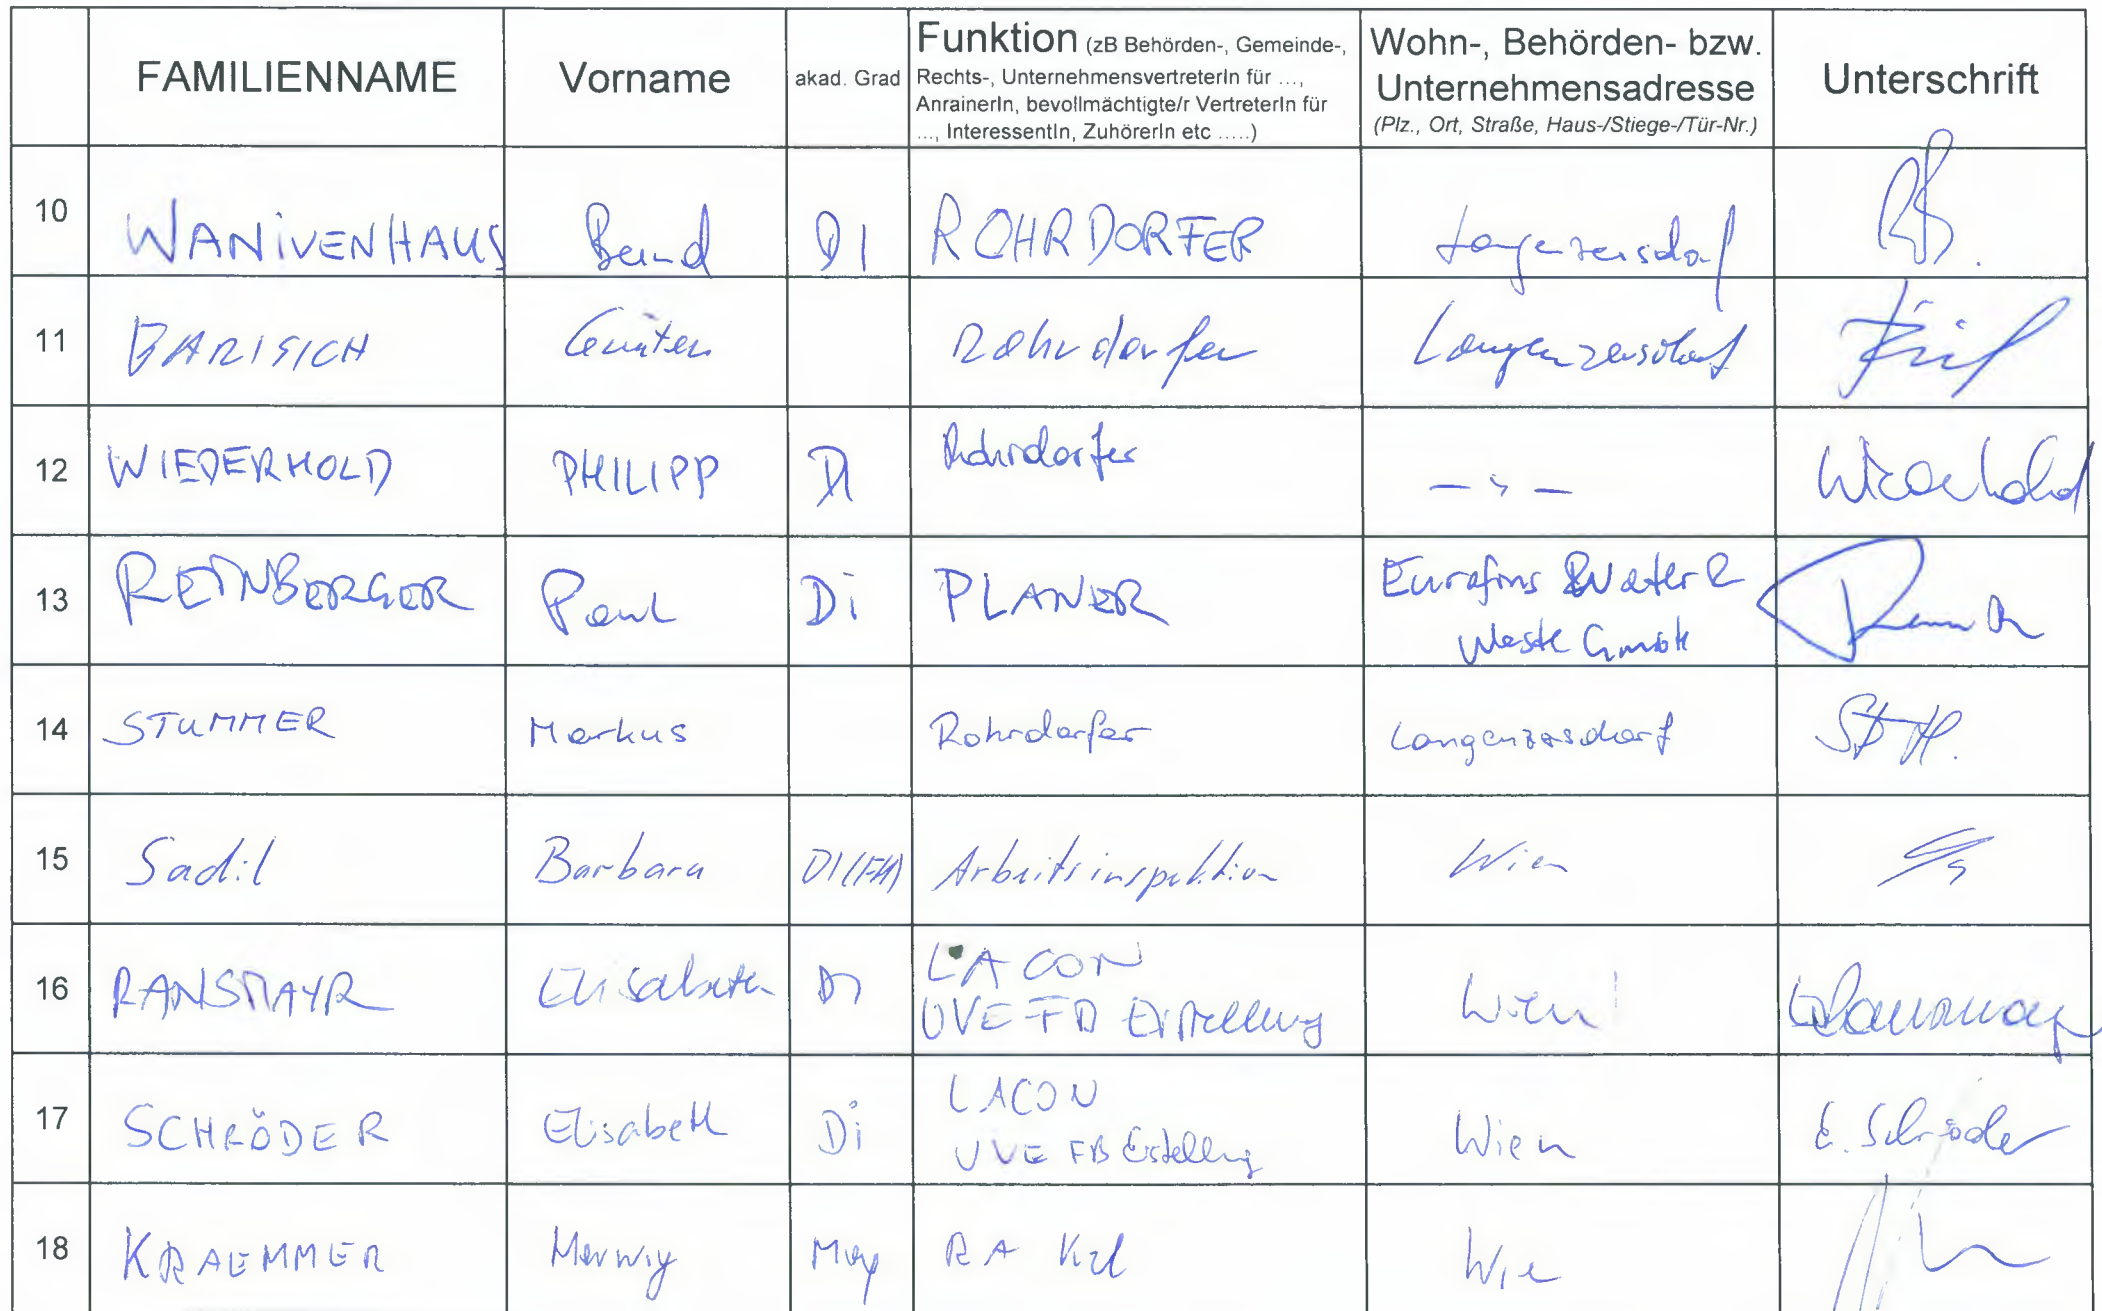 FAMILIENNAME Vorname akad. Grad Funktion (zB Behörden-, Gemeinde-, Rechts-, UnternehmensvertreterIn für ..., AnrainerIn, bevollmächtigte/r VertreterIn für ..., InteressentIn, ZuhörerIn etc .....) Wohn-, Behörden- bzw. Unternehmensadresse (Plz., Ort, Straße, Haus-/Stiege-/Tür-Nr.) Unterschrift
10 WANIVENHAUS Bernd DI ROHRDORFER Langenzersdorf
11 BARISICH Günter Rohrdorfer Langenzersdorf
12 WIEDERHOLD PHILIPP DI Rohrdorfer — " — Wiederhold
13 REINBERGER Paul Di PLANER Eurofins Water &
Waste GmbH
14 STUMMER Markus Rohrdorfer Langenzersdorf
15 Sadil Barbara DI(FH) Arbeitsinspektion Wien
16 RANSMAYR Elisabeth DI LACON
UVE-FB Erstellung Wien
17 SCHRÖDER Elisabeth Di LACON
UVE FB Erstellung Wien E. Schröder
18 KRAEMMER Mag RA Wien